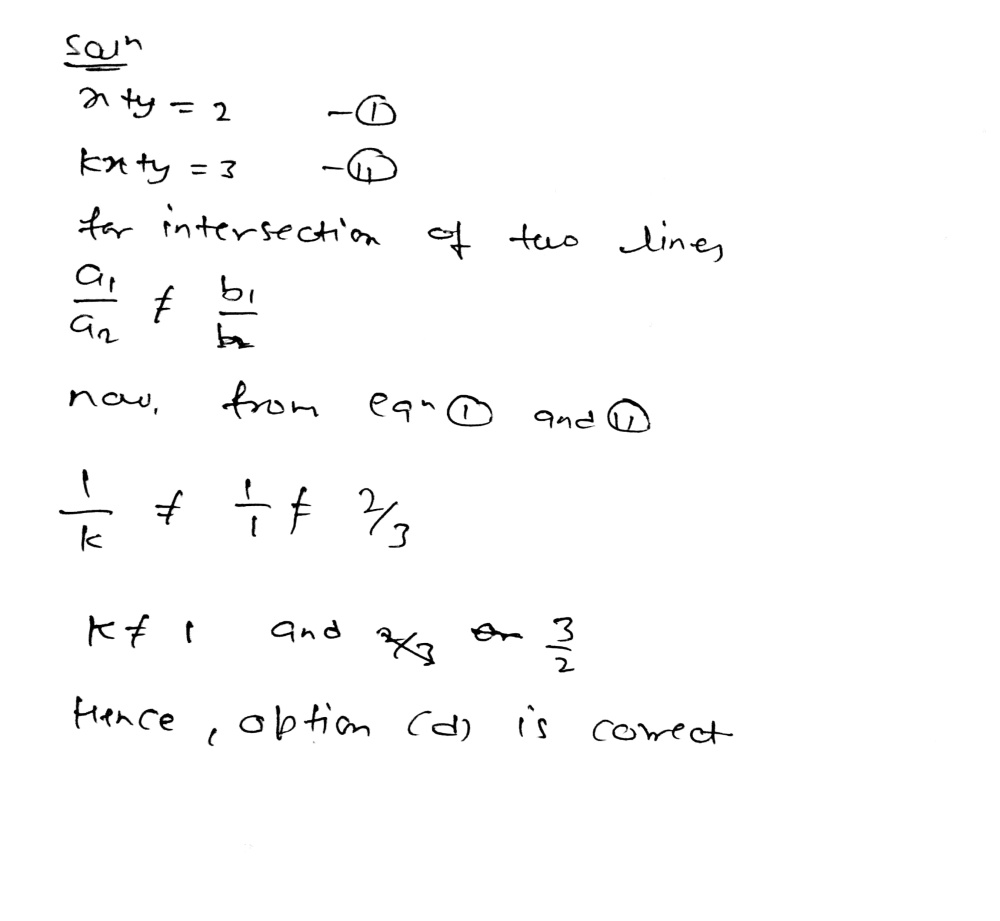 Soln
x+y = 2 -①
kx+y = 3 -⑪
for intersection of two lines
a1/a2 ≠ b1/b2
now, from eqn ① and ⑪
1/k ≠ 1/1 ≠ 2/3
k ≠ 1 and 3/2
Hence, option (d) is correct